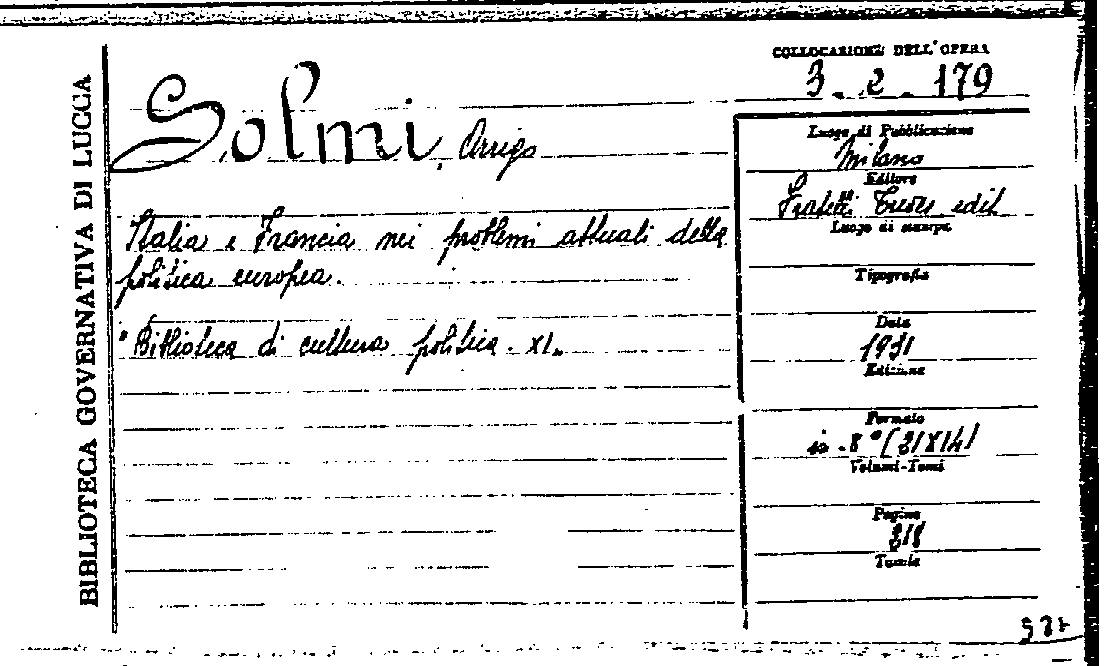 BIBLIOTECA GOVERNATIVA DI LUCCA
COLLOCAZIONE DELL'OPERA
3. 2. 179
Solmi, Arrigo
Italia e Francia nei problemi attuali della
politica europea.
"Biblioteca di cultura politica. XI.
Luogo di Pubblicazione
Milano
Editore
Fratelli Treves edit.
Luogo di stampa
Tipografia
Data
1931
Edizione
Formato
in-8° (21X14)
Volumi-Tomi
Pagine
Tavole